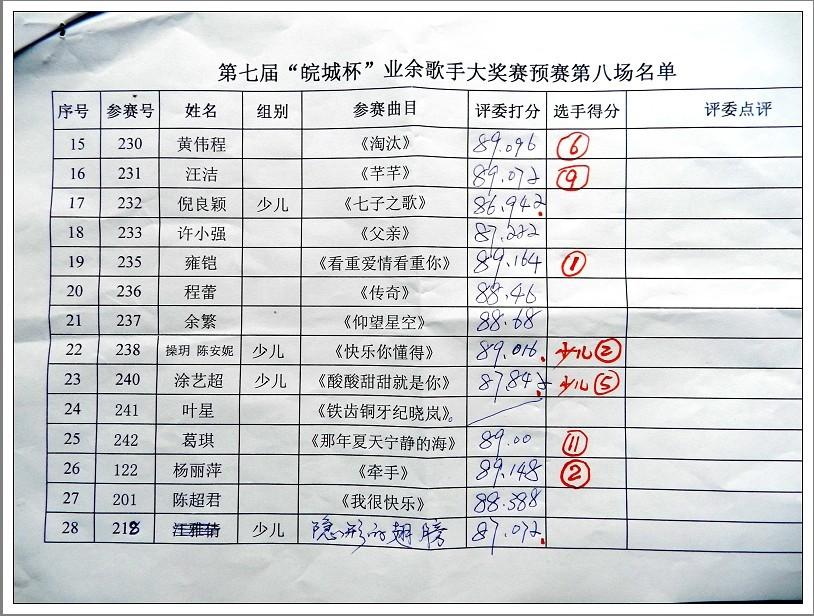 第七届“皖城杯”业余歌手大奖赛预赛第八场名单
序号 参赛号 姓名 组别 参赛曲目 评委打分 选手得分 评委点评
15 230 黄伟程 《淘汰》 89.096 ⑥
16 231 汪洁 《芊芊》 89.072 ⑨
17 232 倪良颖 少儿 《七子之歌》 86.942
18 233 许小强 《父亲》 87.222
19 235 雍铠 《看重爱情看重你》 89.164 ①
20 236 程蕾 《传奇》 88.46
21 237 余繁 《仰望星空》 88.68
22 238 操玥 陈安妮 少儿 《快乐你懂得》 89.016 少儿②
23 240 涂艺超 少儿 《酸酸甜甜就是你》 87.842 少儿⑤
24 241 叶星 《铁齿铜牙纪晓岚》。
25 242 葛琪 《那年夏天宁静的海》 89.00 ⑪
26 122 杨丽萍 《牵手》 89.148 ②
27 201 陈超君 《我很快乐》 88.588
28 218 少儿 隐形的翅膀 87.072